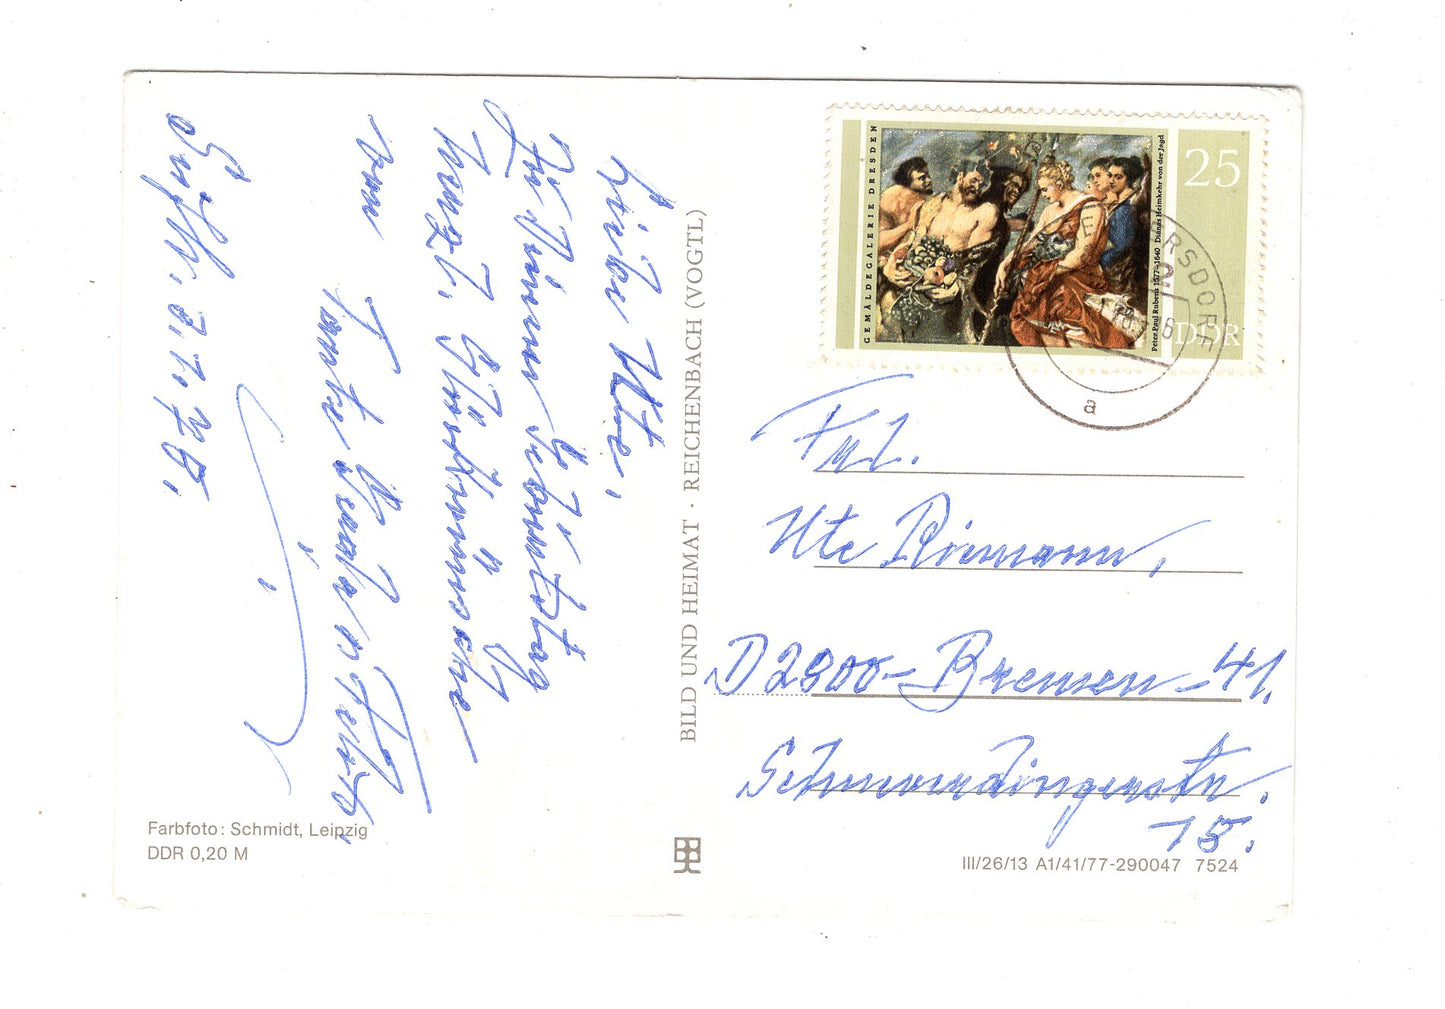 Liebe Ute,
Zu Deinem Geburtstag
herzl. Glückwünsche
von
Tante
BILD UND HEIMAT · REICHENBACH (VOGTL)
GEMÄLDEGALERIE DRESDEN
Peter Paul Rubens 1577–1640 Dianas Heimkehr von der Jagd
25
DDR
RSDORF
a
Frl.
Ute Reimann,
D 2800-Bremen-41.
Schneverdingerstr.
15.
Farbfoto: Schmidt, Leipzig
DDR 0,20 M
III/26/13 A1/41/77-290047 7524